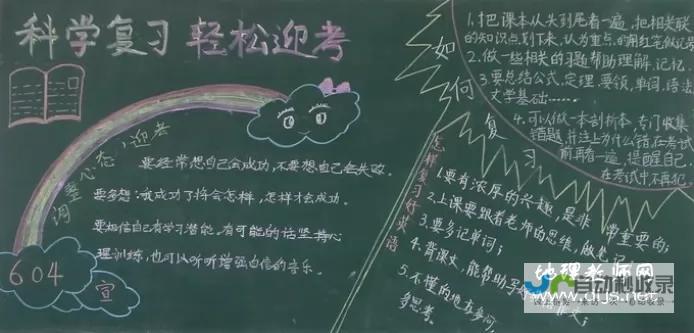 科学复习 轻松迎考
调整心态,迎考
要经常想自己会成功,不要想自己会失败。
要多想:我成功了将会怎样,怎样才会成功。
要相信自己有学习潜能。有可能的话坚持心
理训练,也可以听听增强自信的音乐。
604
宣
如何复习
1.把课本从头到尾看一遍,把相关联
的知识点划下来,认为重点的用红笔做记号
2.做一些相关的习题帮助理解、记忆。
3.要总结公式,定理,要领,单词,语法
文学基础……
4.可以做一本剖析本,专门收集
错题,并注上为什么错,在考试
前再看一遍,提醒自己
在考试中不再犯。
怎样复习好英语
1.要有浓厚的兴趣,是非常重要的;
2.上课要跟着老师的思维,做笔记
3.要多记单词;
4.背课文,能帮助
5.不懂的地方多问
多思考。
地理老师网
www.dljs.net
自动秒收录